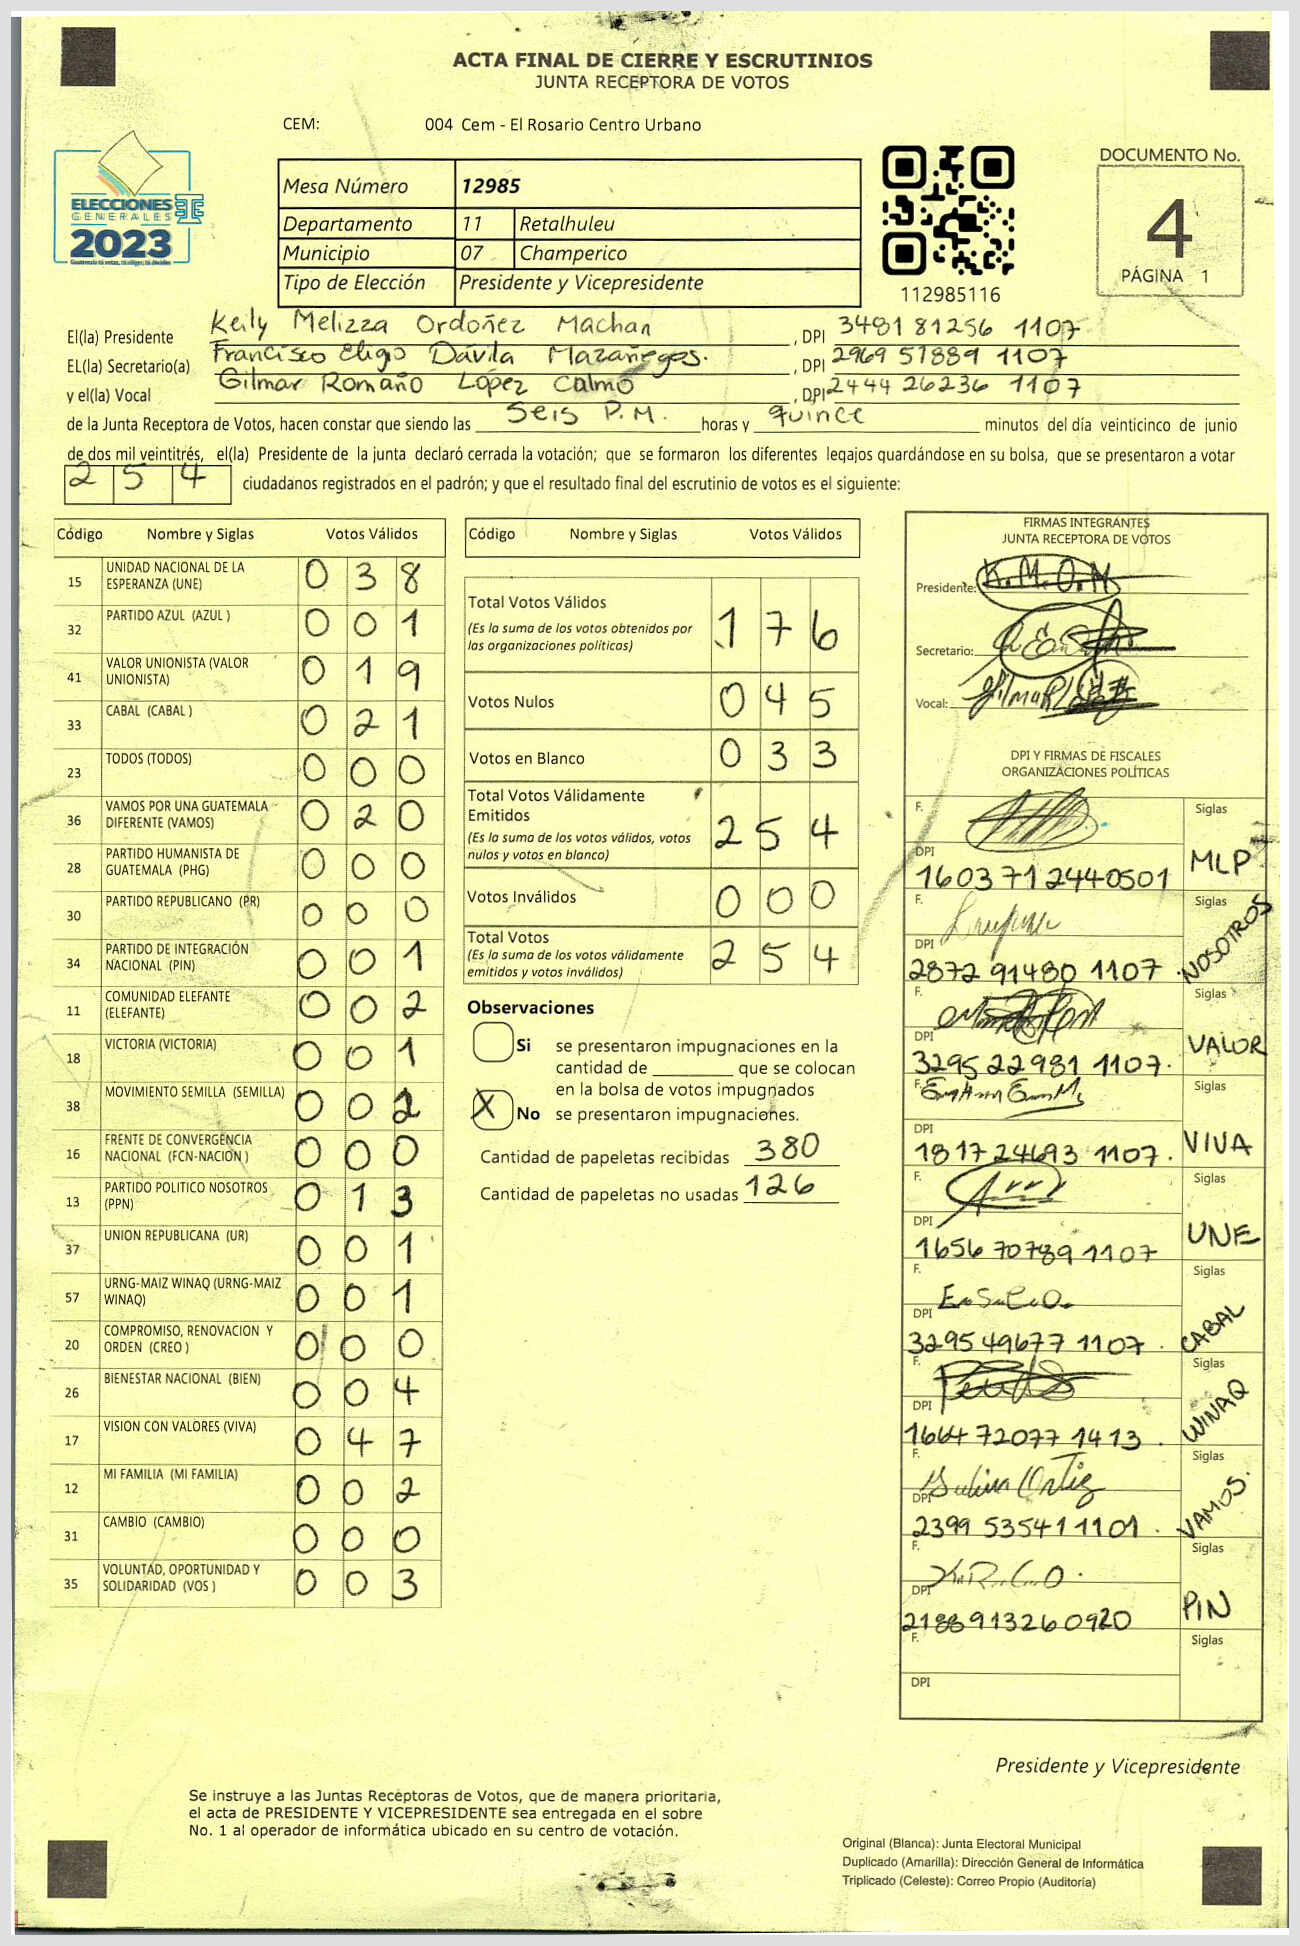 ACTA FINAL DE CIERRE Y ESCRUTINIOS
JUNTA RECEPTORA DE VOTOS
CEM: 004 Cem - El Rosario Centro Urbano
ELECCIONES
GENERALES
2023
Mesa Número 12985
Departamento 11 Retalhuleu
Municipio 07 Champerico
Tipo de Elección Presidente y Vicepresidente
112985116
DOCUMENTO No.
4
PÁGINA 1
El(la) Presidente Keily Melizza Ordoñez Machan , DPI 3481 81256 1107
EL(la) Secretario(a) Francisco Eligo Dávila Mazariegos. , DPI 2969 51889 1107
y el(la) Vocal Gilmar Romaño López Calmo , DPI 2444 26236 1107
de la Junta Receptora de Votos, hacen constar que siendo las Seis P.M. horas y quince minutos del día veinticinco de junio
de dos mil veintitrés, el(la) Presidente de la junta declaró cerrada la votación; que se formaron los diferentes legajos quardándose en su bolsa, que se presentaron a votar
2 5 4 ciudadanos registrados en el padrón; y que el resultado final del escrutinio de votos es el siguiente:
Código Nombre y Siglas Votos Válidos
15 UNIDAD NACIONAL DE LA ESPERANZA (UNE) 0 3 8
32 PARTIDO AZUL (AZUL ) 0 0 1
41 VALOR UNIONISTA (VALOR UNIONISTA) 0 1 9
33 CABAL (CABAL ) 0 2 1
23 TODOS (TODOS) 0 0 0
36 VAMOS POR UNA GUATEMALA DIFERENTE (VAMOS) 0 2 0
28 PARTIDO HUMANISTA DE GUATEMALA (PHG) 0 0 0
30 PARTIDO REPUBLICANO (PR) 0 0 0
34 PARTIDO DE INTEGRACIÓN NACIONAL (PIN) 0 0 1
11 COMUNIDAD ELEFANTE (ELEFANTE) 0 0 2
18 VICTORIA (VICTORIA) 0 0 1
38 MOVIMIENTO SEMILLA (SEMILLA) 0 0 2
16 FRENTE DE CONVERGENCIA NACIONAL (FCN-NACION ) 0 0 0
13 PARTIDO POLITICO NOSOTROS (PPN) 0 1 3
37 UNION REPUBLICANA (UR) 0 0 1
57 URNG-MAIZ WINAQ (URNG-MAIZ WINAQ) 0 0 1
20 COMPROMISO, RENOVACION Y ORDEN (CREO ) 0 0 0
26 BIENESTAR NACIONAL (BIEN) 0 0 4
17 VISION CON VALORES (VIVA) 0 4 7
12 MI FAMILIA (MI FAMILIA) 0 0 2
31 CAMBIO (CAMBIO) 0 0 0
35 VOLUNTAD, OPORTUNIDAD Y SOLIDARIDAD (VOS ) 0 0 3
Código Nombre y Siglas Votos Válidos
Total Votos Válidos 1 7 6
(Es la suma de los votos obtenidos por
las organizaciones políticas)
Votos Nulos 0 4 5
Votos en Blanco 0 3 3
Total Votos Válidamente
Emitidos 2 5 4
(Es la suma de los votos válidos, votos
nulos y votos en blanco)
Votos Inválidos 0 0 0
Total Votos 2 5 4
(Es la suma de los votos válidamente
emitidos y votos inválidos)
Observaciones
Si se presentaron impugnaciones en la
cantidad de ________ que se colocan
en la bolsa de votos impugnados
X No se presentaron impugnaciones.
Cantidad de papeletas recibidas 380
Cantidad de papeletas no usadas 126
FIRMAS INTEGRANTES
JUNTA RECEPTORA DE VOTOS
Presidente: K.M.O.M
Secretario:
Vocal:
DPI Y FIRMAS DE FISCALES
ORGANIZACIONES POLÍTICAS
F. Siglas
DPI 1603 71244 0501 MLP
F. Siglas
DPI 2872 91480 1107 NOSOTROS
F. Siglas
DPI 3295 22981 1107. VALOR
F. Siglas
DPI 1817 24693 1107. VIVA
F. Siglas
DPI 1656 70789 1107 UNE
F. Siglas
DPI 3295 49677 1107. CABAL
F. Siglas
DPI 1664 72077 1413. WINAQ
F. Siglas
DPI 2399 53541 1101. VAMOS.
F. Siglas
DPI 2188 91326 0920 PIN
F. Siglas
DPI
Presidente y Vicepresidente
Se instruye a las Juntas Receptoras de Votos, que de manera prioritaria,
el acta de PRESIDENTE Y VICEPRESIDENTE sea entregada en el sobre
No. 1 al operador de informática ubicado en su centro de votación.
Original (Blanca): Junta Electoral Municipal
Duplicado (Amarilla): Dirección General de Informática
Triplicado (Celeste): Correo Propio (Auditoría)